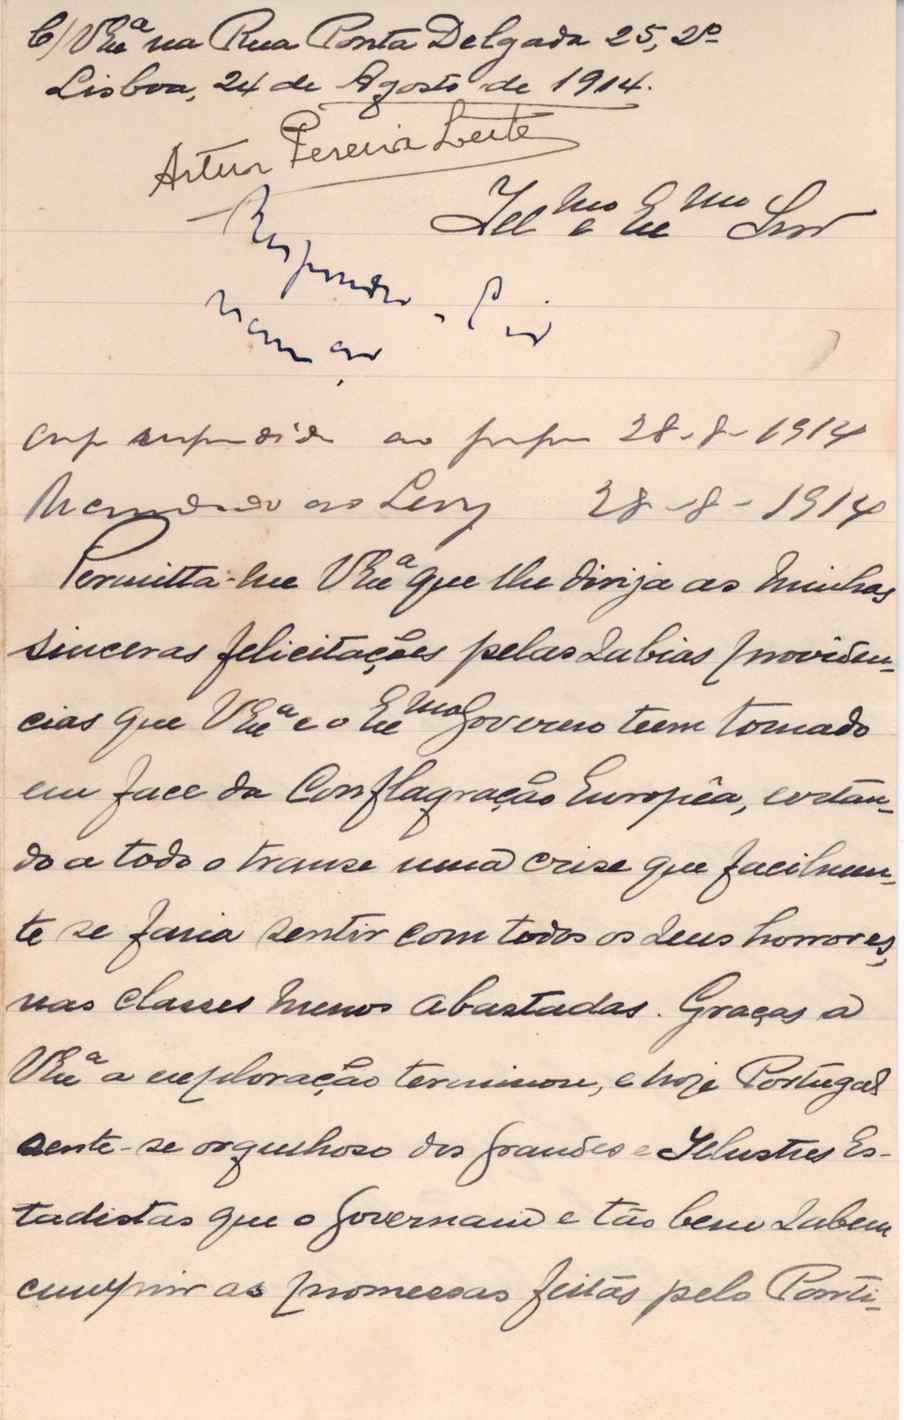 C/ VExª na Rua Ponta Delgada 25, 2º
Lisboa, 24 de Agosto de 1914.
Artur Pereira Leite
Illmo e Exmo Snr
Responder
ao 28-8-1914
Mandado ao Leny 28-8-1914
Permitta-me VExª que lhe dirija as minhas
sinceras felicitações pelas sabias providen-
cias que VExª e o Exmo Governo teem tomado
em face da Conflagração Europêa, evitan-
do a todo o transe uma crise que facilmen-
te se faria sentir com todos os seus horrores,
nas classes menos abastadas. Graças a
VExª a exploração terminou, e hoje Portugal
sente-se orgulhoso dos grandes e Illustres Es-
tadistas que o governam e tão bem sabem
cumprir as promessas feitas pelo Parti-